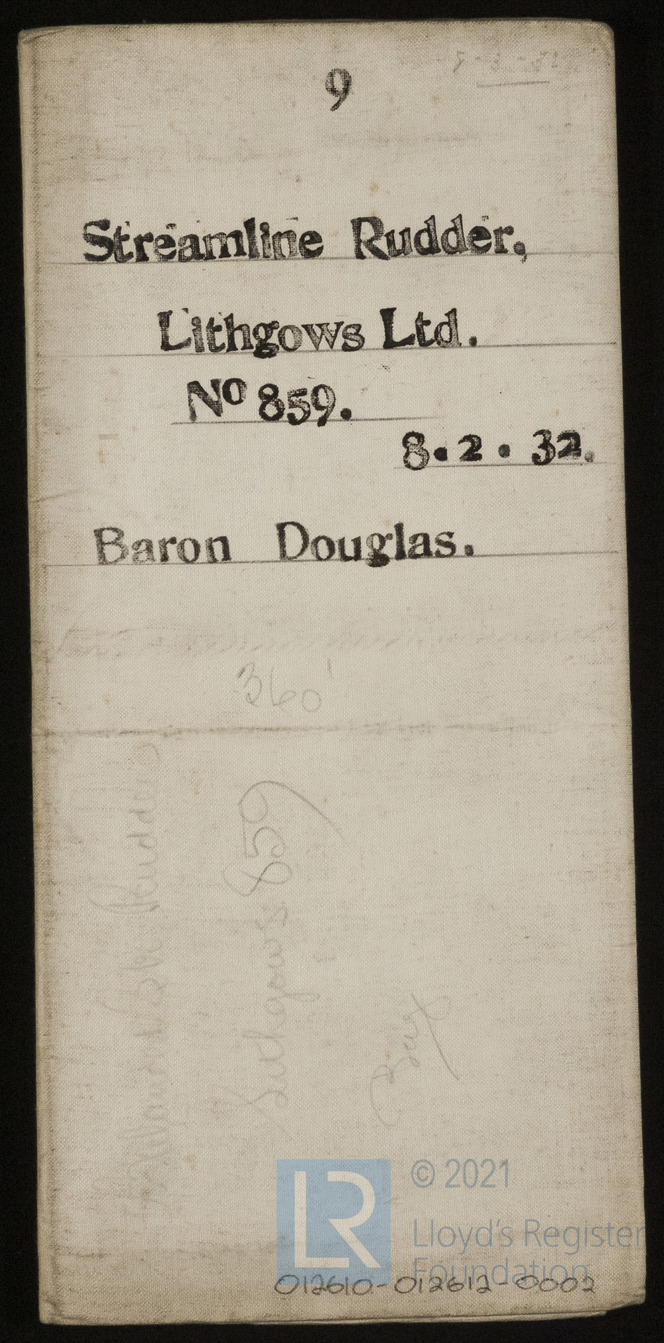 9
Streamline Rudder,
Lithgows Ltd.
Nº 859.
8.2.32.
Baron Douglas.
360'
Rudder
Lithgows 859
LR
© 2021
Lloyd's Register
Foundation
012610-012612-0002